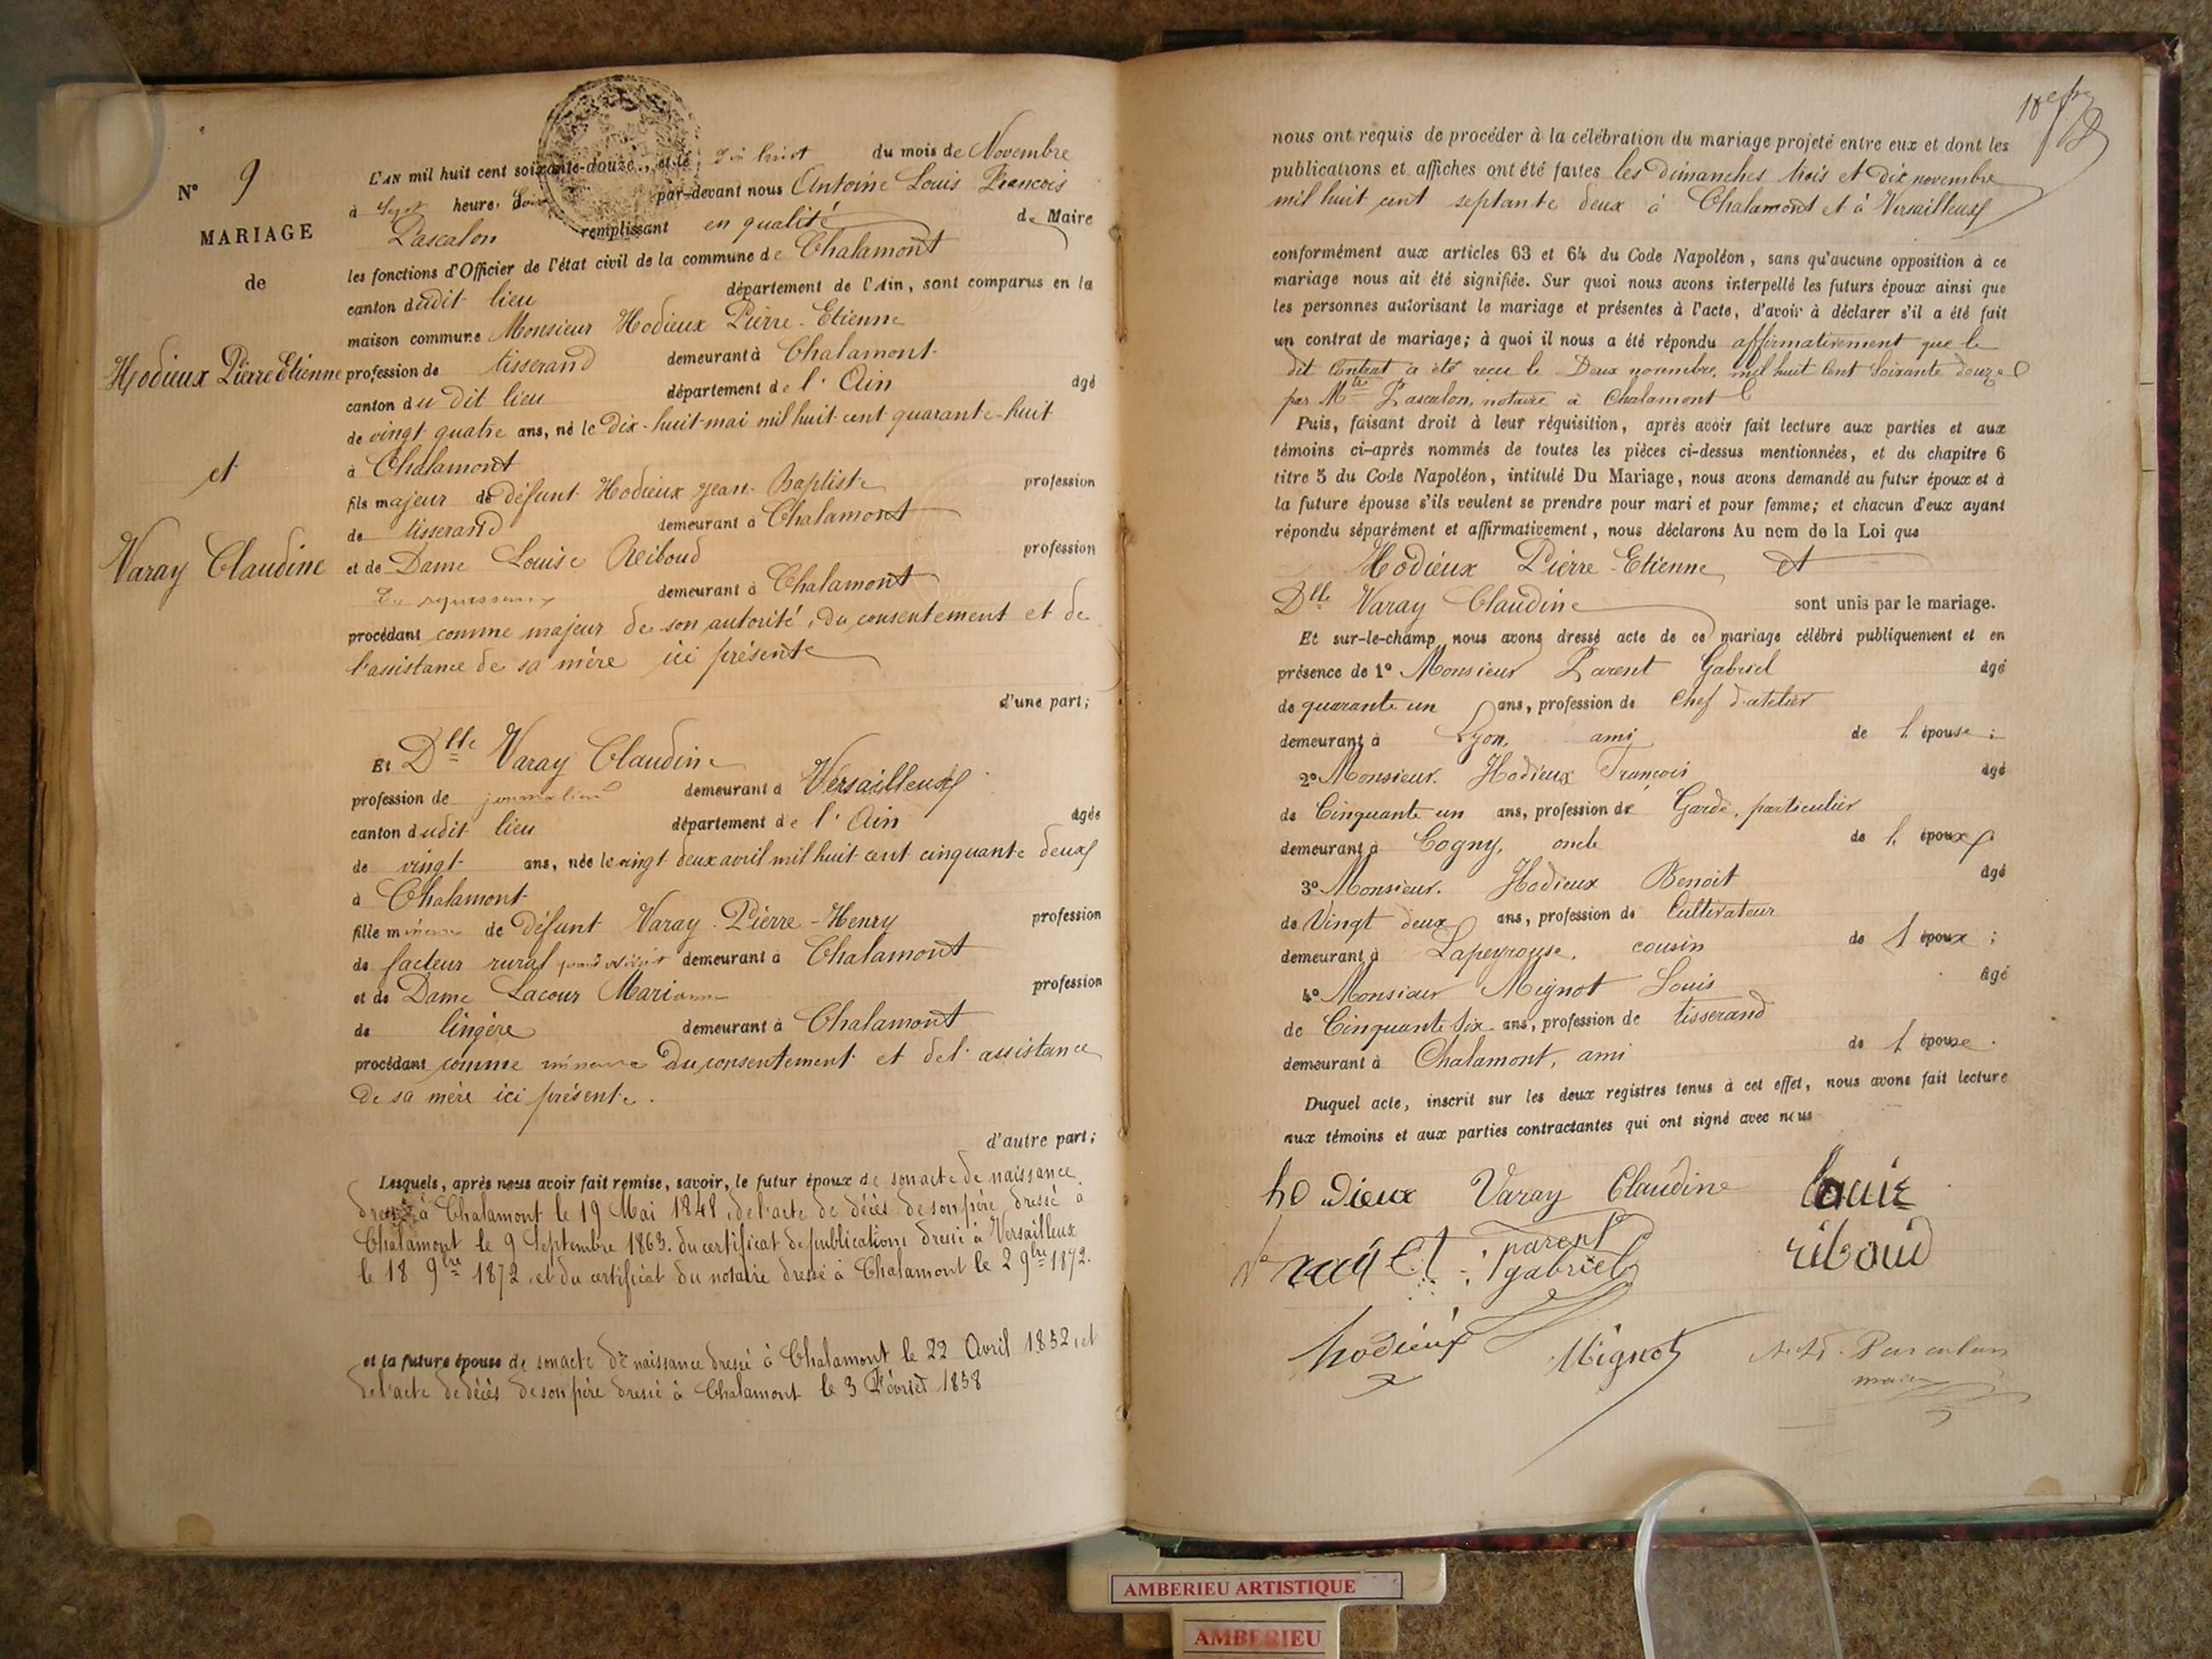 N° 9
MARIAGE
de
Hodieux Pierre Etienne
et
Varay Claudine
L'AN mil huit cent soixante-douze, et le dix huit du mois de Novembre
à Sept heure, Soir par-devant nous Antoine Louis François
Pascalon remplissant en qualité de Maire
les fonctions d'Officier de l'état civil de la commune de Chalamont
canton dudit lieu département de l'Ain, sont comparus en la
maison commune Monsieur Hodieux Pierre-Etienne
profession de tisserand demeurant à Chalamont
canton du dit lieu département de l'Ain âgé
de vingt quatre ans, né le Dix-huit mai mil huit cent quarante-huit
à Chalamont
fils majeur de défunt Hodieux Jean-Baptiste profession
de tisserand demeurant à Chalamont
et de Dame Louise Reiboud profession
demeurant à Chalamont
procédant comme majeur de son autorité, du consentement et de
l'assistance de sa mère ici présente
d'une part;
Et Dlle Varay Claudine
profession de demeurant à Versailleux
canton dudit lieu département de l'Ain âgée
de vingt ans, née le vingt deux avril mil huit cent cinquante deux
à Chalamont
fille mineure de défunt Varay Pierre-Henry profession
de facteur rural quand vivait demeurant à Chalamont
et de Dame Lacour Marianne profession
de lingère demeurant à Chalamont
procédant comme mineure du consentement et de l'assistance
de sa mère ici présente.
d'autre part;
Lesquels, après nous avoir fait remise, savoir, le futur époux de son acte de naissance
dressé à Chalamont le 19 Mai 1848, de l'acte de décès de son père dressé à
Chalamont le 9 Septembre 1863. du certificat de publications dressé à Versailleux
le 18 9bre 1872, et du certificat du notaire dressé à Chalamont le 2 9bre 1872.
et la future épouse de son acte de naissance dressé à Chalamont le 22 Avril 1852, et
de l'acte de décès de son père dressé à Chalamont le 3 Février 1858
nous ont requis de procéder à la célébration du mariage projeté entre eux et dont les
publications et affiches ont été faites les dimanches trois et dix novembre
mil huit cent septante deux à Chalamont et à Versailleux
conformément aux articles 63 et 64 du Code Napoléon, sans qu'aucune opposition à ce
mariage nous ait été signifiée. Sur quoi nous avons interpellé les futurs époux ainsi que
les personnes autorisant le mariage et présentes à l'acte, d'avoir à déclarer s'il a été fait
un contrat de mariage; à quoi il nous a été répondu affirmativement que le
dit Contrat a été reçu le Deux novembre, mil huit Cent Soixante douze
par Mtre Pascalon, notaire à Chalamont
Puis, faisant droit à leur réquisition, après avoir fait lecture aux parties et aux
témoins ci-après nommés de toutes les pièces ci-dessus mentionnées, et du chapitre 6
titre 5 du Code Napoléon, intitulé Du Mariage, nous avons demandé au futur époux et à
la future épouse s'ils veulent se prendre pour mari et pour femme; et chacun d'eux ayant
répondu séparément et affirmativement, nous déclarons Au nom de la Loi que
Hodieux Pierre-Etienne et
Dlle Varay Claudine sont unis par le mariage.
Et sur-le-champ nous avons dressé acte de ce mariage célébré publiquement et en
présence de 1° Monsieur Parent Gabriel âgé
de quarante un ans, profession de Chef d'atelier
demeurant à Lyon, ami de l'épouse;
2° Monsieur. Hodieux François âgé
de Cinquante un ans, profession de Garde, particulier
demeurant à Cogny, oncle de l'époux
3° Monsieur. Hodieux Benoit âgé
de Vingt deux ans, profession de Cultivateur
demeurant à Lapeyrouse, cousin de l'époux;
4° Monsieur Mignot Louis âgé
de Cinquante Six ans, profession de tisserand
demeurant à Chalamont, ami de l'épouse.
Duquel acte, inscrit sur les deux registres tenus à cet effet, nous avons fait lecture
aux témoins et aux parties contractantes qui ont signé avec nous
hodieux Varay Claudine Louis
parent riboud
gabriel
hodieux Mignot Pascalon
maire
AMBERIEU ARTISTIQUE
AMBERIEU